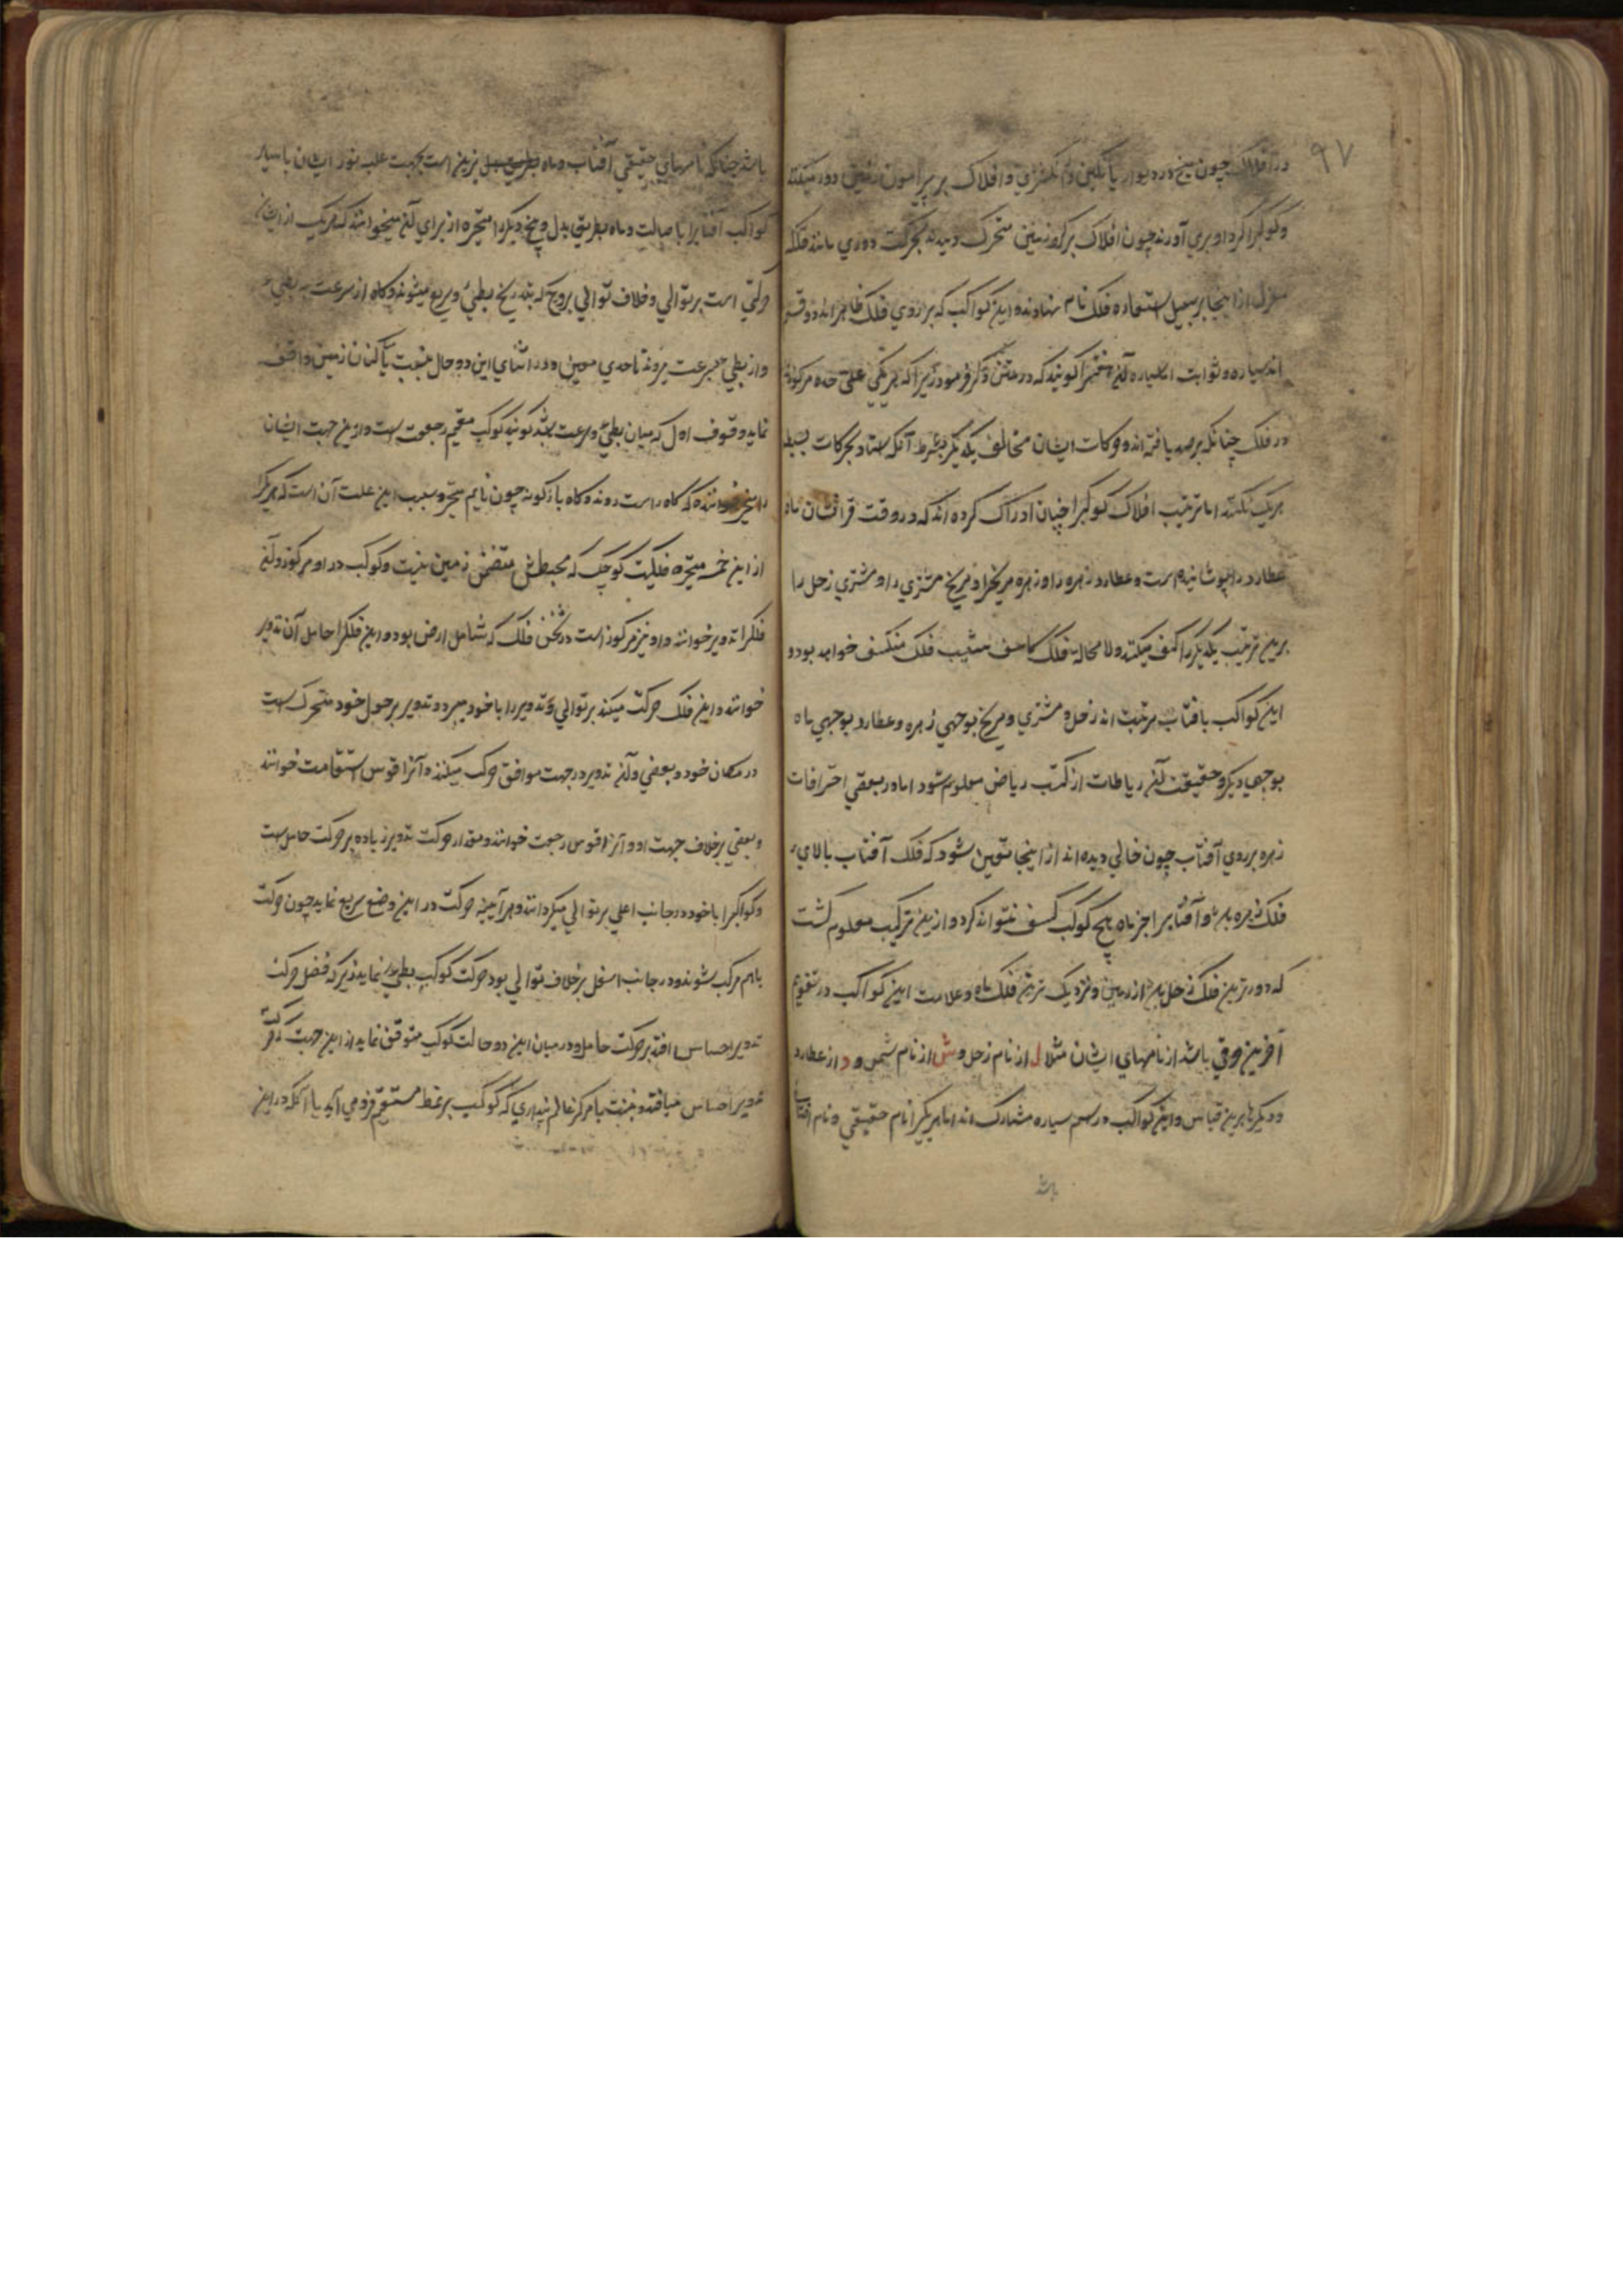 ۹۷
در افلاک چون میخ در دیوار یا نگین در انگشتری و افلاک بر پیرامون زمین دور میکنند
و کوکبرا گرد او بری آورند چون افلاک بر کره زمین متحرک دیدند بحرکت دوری مانند فلکه
مغزل از اینجا بر سبیل استعاره فلک نام نهادند و این کواکب که بر روی فلک ظاهراند دو قسم
اند سیاره و ثوابت اما سیاره آن هفتیرا کویند که در متن ذکر فرمود زیرا که هر یکی علی حده مرکوزند
در فلک چنانکه برصد یافته اند و حرکات ایشان مخالف یکدیگر بشرط آنکه استاد بحرکات بسیط
هر یک نکنند اما ترتیب افلاک کوکبرا چنان ادراک کرده اند که در وقت قرانشان ماه
عطارد را پوشانیده است و عطارد زهره را و زهره مریخرا و مریخ مشتری را و مشتری زحل را
برین ترتیب یکدیگر را کسف میکنند و لا محاله فلک کاسف شیب فلک منکسف خواهد بود و
این کواکب بافتاب مرتبت اند زحل و مشتری و مریخ بوجهی زهره و عطارد بوجهی ماه
بوجهی دیگر و حقیقت آن ریاطات از کتب ریاض معلوم شود اما در بعضی احترافات
زهره بر روی آفتاب چون خالی دیده اند از اینجا تعین شود که فلک آفتاب بالای
فلک زهره بود و آفتابرا جز ماه هیچ کوکب کسف نتواند کرد و ازین ترکیب معلوم گشت
که دورترین فلک زحل بود از زمین و نزدیک ترین فلک ماه و علامت این کواکب در تقویم
آخرین حرفی باشد از نامهای ایشان مثلا ل از نام زحل و ش از نام شمس و د از عطارد
و دیگرها برین قیاس و این کواکب در اسم سیاره مشارک اند اما هر یکیرا نام حقیقی و نام افتاب
باشد
باشد چنانکه نامهای حقیقی آفتاب و ماه نیرین است بجهت غلبه نور ایشان با سایر
کواکب آفتابرا باصالت و ماه بطریق بدل و پنج دیگر را متحیره از برای آن میخوانند که هر یک از ایشان
حرکتی است بر توالی و خلاف توالی بروج که بتدریج بطیء و سریع میشوند و کاه از سرعت به بطیء
و از بطیء بسرعت میروند تا حدی معین و در اثنای این دو حال بنسبت با کنان زمین واقف
نماید وقوف اول که میان بطیء و سرعت باشد کویند کوکب مقیم رجعت است و ازین جهت ایشان
را متحیر خوانند که کاه راست روند و کاه باز کونه چون نایم متحیر و سبب این علت آن است که هر یکرا
از این خمسه متحیره فلکیت کوچک که محیطش متضمن زمین نیست و کوکب در او مرکوز و آن
فلکرا تدویر خوانند و او نیز مرکوز است در ثخن فلک که شامل ارض بود و این فلکرا حامل آن تدویر
خوانند و این فلک حرکت میکند بر توالی و تدویر را با خود میبرد و تدویر بر حول خود متحرک است
در مکان خود و بعضی از آن تدویر در جهت موافق حرکت میکند و آنرا قوس استقامت خوانند
و بعضی بر خلاف جهت او و آنرا قوس رجعت خوانند و مقدار حرکت تدویر زیاده بر حرکت حامل است
و کواکبرا با خود در جانب اعلی بر توالی میگردانند و هر آیینه حرکت در این وضع سریع نماید چون حرکت
باهم مرکب شوند و در جانب اسفل بر خلاف توالی بود حرکت کوکب بطیء نماید زیرا که فضل حرکت
تدویر احساس افتد بر حرکت حامل و در میان این دو حالت کوکب متوقف نماید از این جهت که حرکت
تدویر احساس نیافتد و بنسبت با مرکز عالم پنداری که کوکب بر نمط مستقیم فرو می آید یا آنکه در این